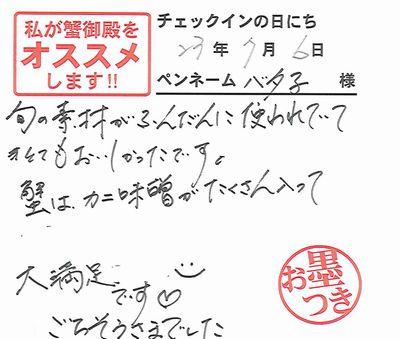 私が蟹御殿を
オススメ
します!!
チェックインの日にち
23年9月6日
ペンネーム バタ子 様
旬の素材がふんだんに使われていて
とてもおいしかったです。
蟹は、カニ味噌がたくさん入って
大満足です♡
ごちそうさまでした
お墨つき